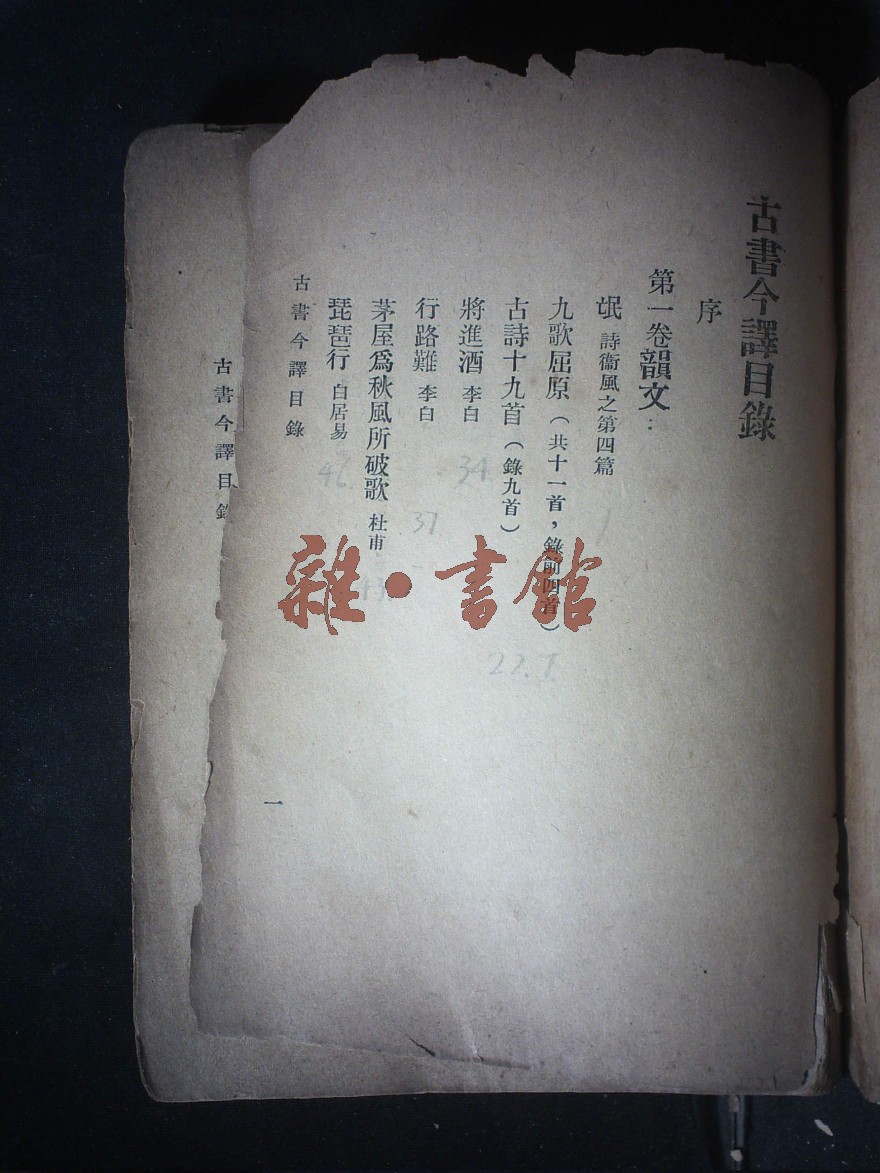 古書今譯目錄
序
第一卷韻文：
氓 詩衞風之第四篇
九歌屈原（共十一首，錄前四首）
古詩十九首（錄九首）
將進酒 李白
行路難 李白
茅屋爲秋風所破歌 杜甫
琵琶行 白居易
古書今譯目錄
一
古書今譯目錄
1
22.
34
37
雜·書館